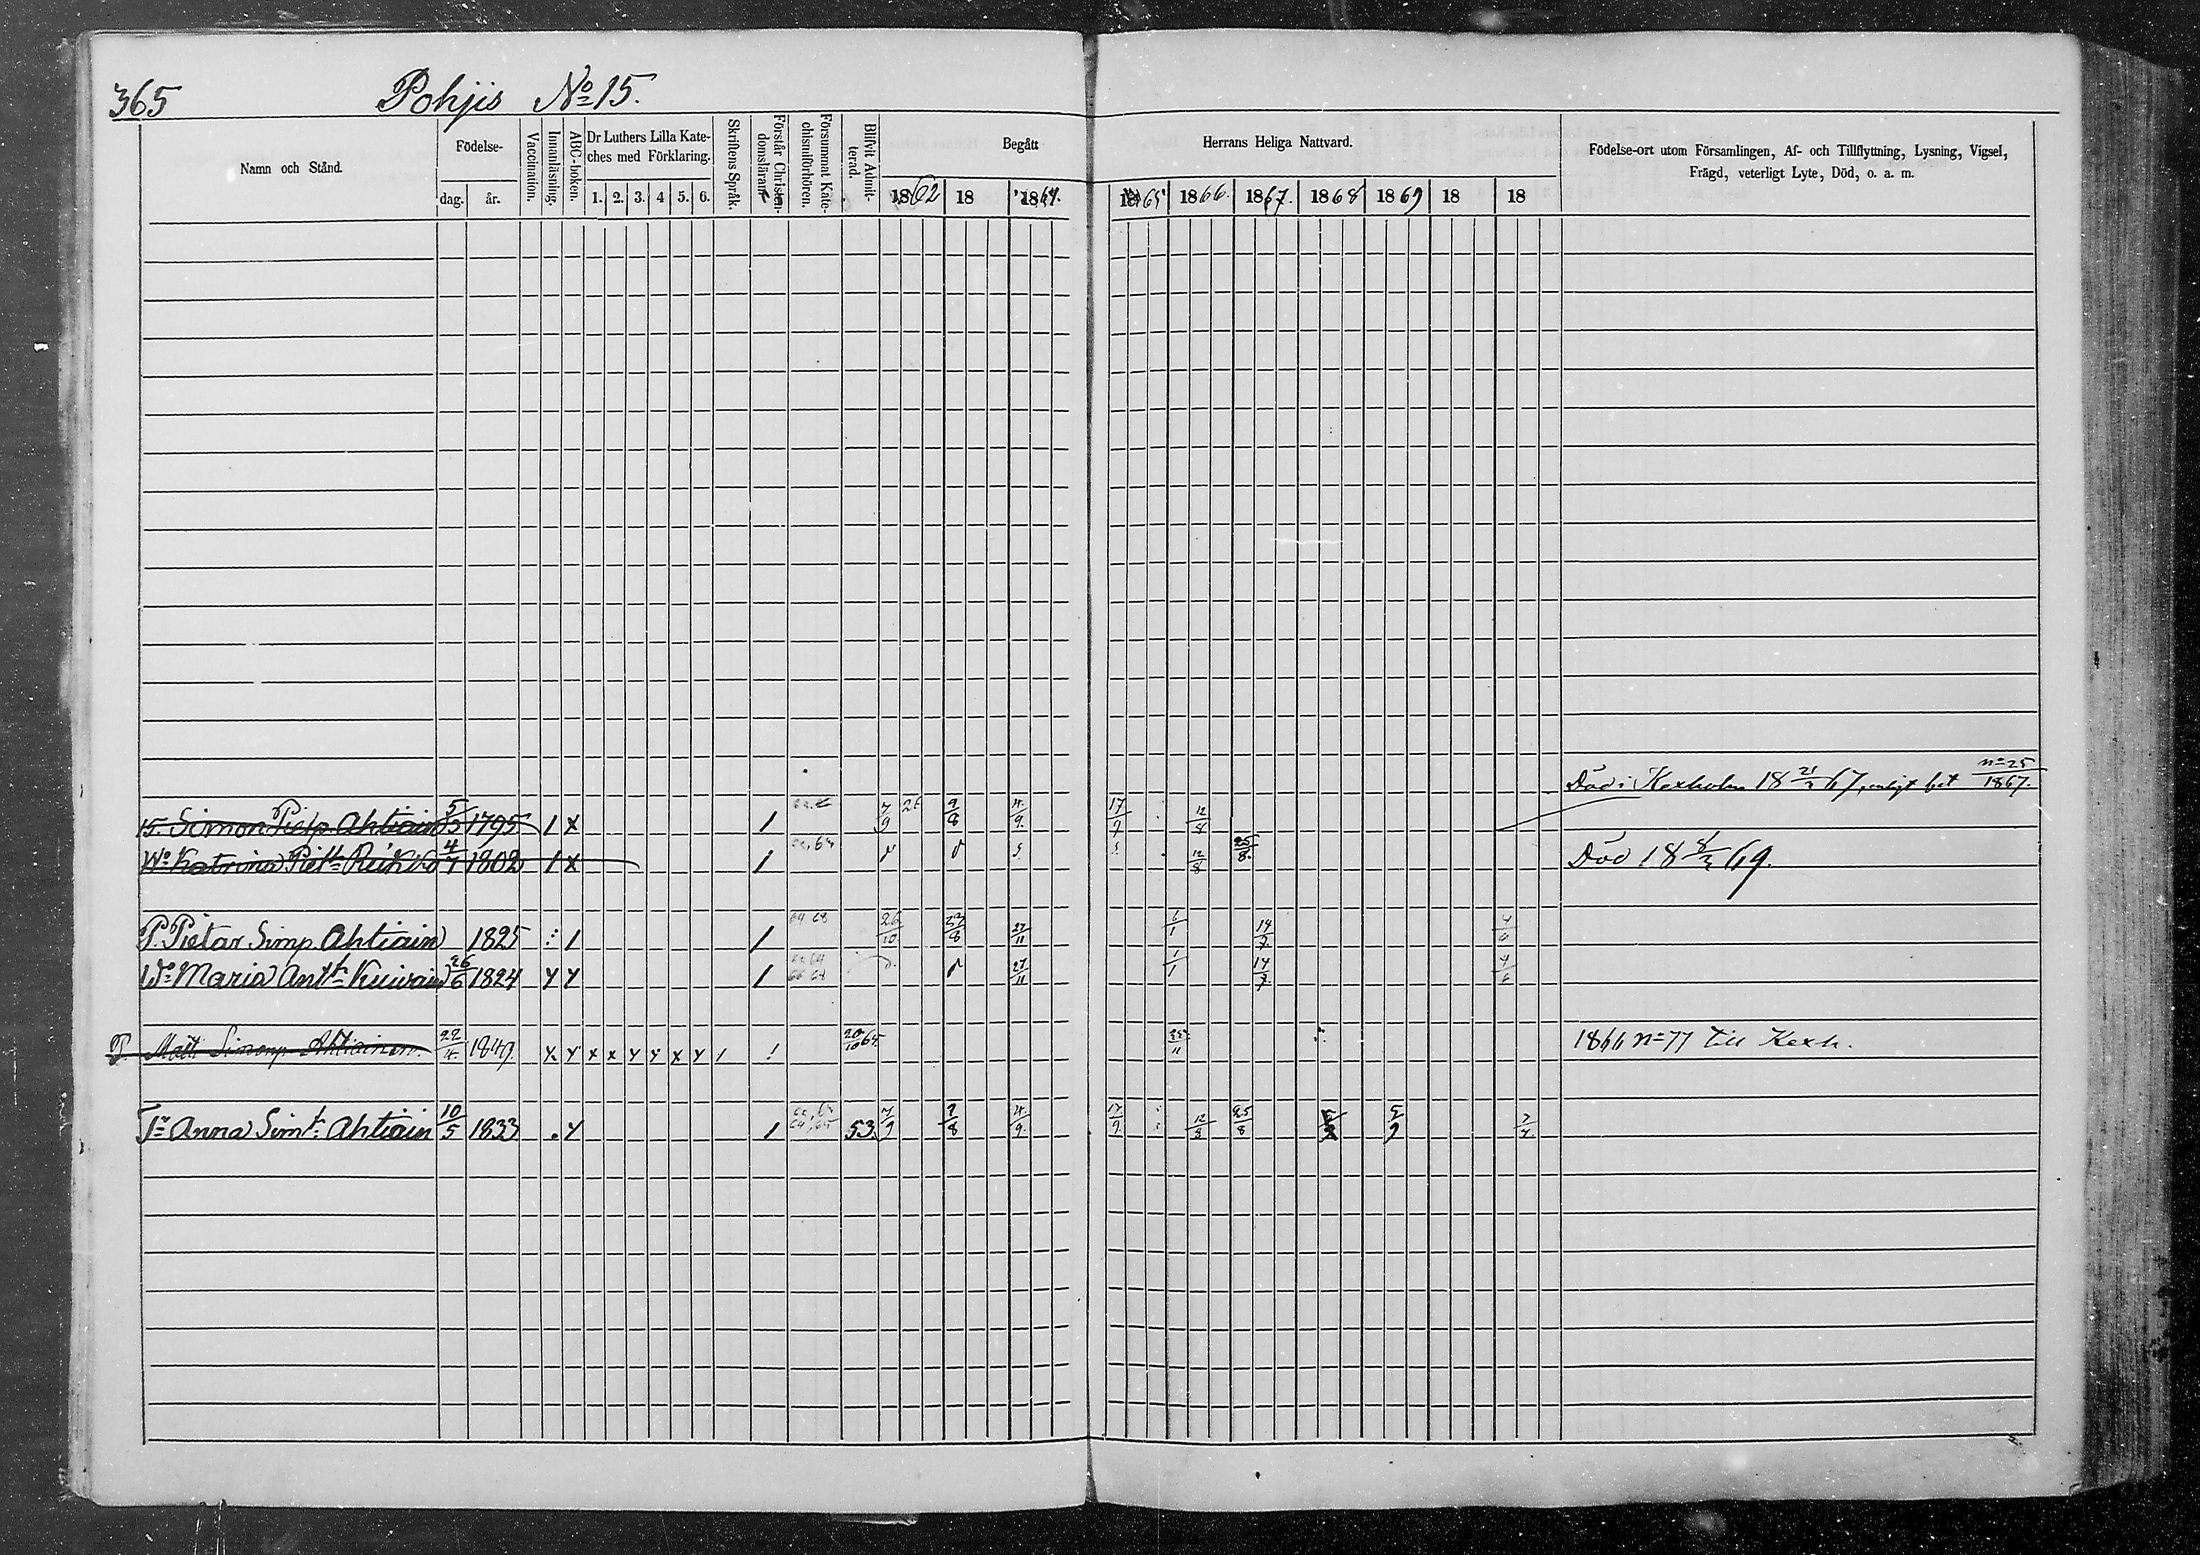 365 Pohjis No 15.
Namn och Stånd.
Födelse-
dag. år.
Vaccination.
Innanläsning.
ABC-boken.
Dr Luthers Lilla Kate-
ches med Förklaring.
1. 2. 3. 4 5. 6.
Skriftens Språk.
Förstår Christen-
domsläran.
Försummat Kate-
chismiförhören.
Blifvit Admit-
terad.
Begått Herrans Heliga Nattvard.
1862 18 1864. 1865 1866. 1867. 1868 1869 18 18
Födelse-ort utom Församlingen, Af- och Tillflyttning, Lysning, Vigsel,
Frägd, veterligt Lyte, Död, o. a. m.
Död i Kexholm 18 21/3 67, enligt bet No 25/1867.
15. Simon Pietp. Ahtiain 5/5 1795 1 x 1 7/9 26 9/8 4/9. 17/9 12/8
Wo Katrina Piett. Reikko 4/7 1802 1 x 1 12/8 25/8. Död 18 8/3 69.
P. Pietar Simp. Ahtiain 1825 1 1 64 68 26/10 23/8 27/11 1/1 14/7 4/6
Wo Maria Antt. Kuivain 26/6 1824 y y 1 27/11 1/1 14/7 4/6
P. Matts Simonp. Ahtiainen. 22/4. 1849 x y x x y y x y 1 ! 20/10 65 1866 No 77 till Kexh.
Dr Anna Simt. Ahtiain 10/5 1833 . y 1 53. 7/9 9/8 4/9. 17/9. 12/8 25/8 5/9 7/4.